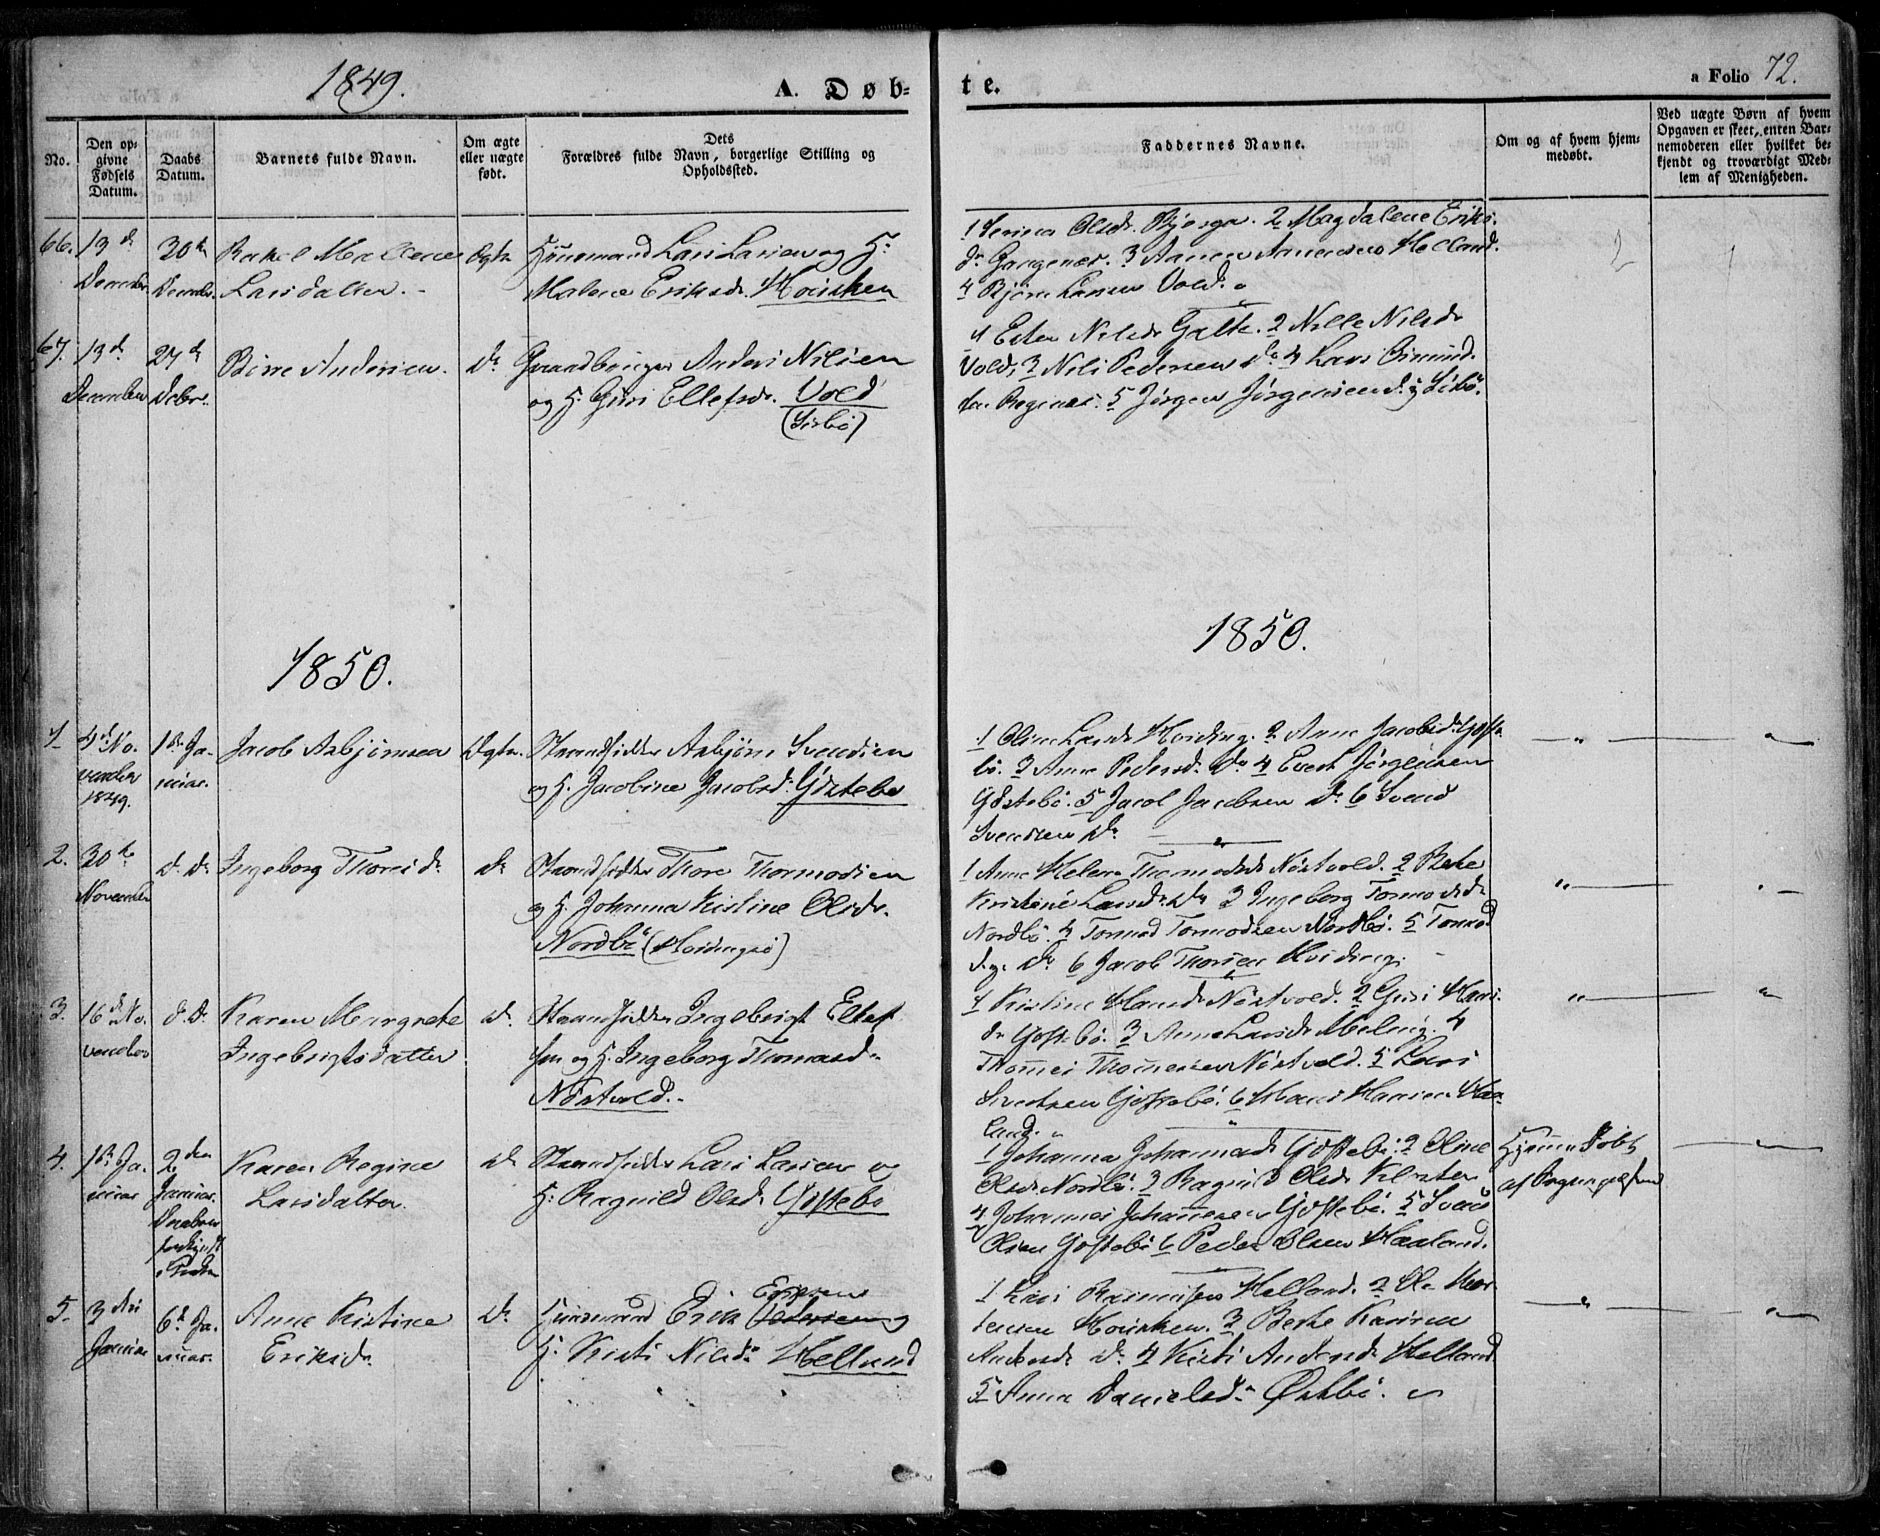 1849.
A. Døb-
te.
a Folio 72.
No.
Den op-
givne
Fødsels
Datum.
Daabs
Datum.
Barnets fulde Navn.
Om ægte
eller uægte
født.
Dets
Forældres fulde Navn, borgerlige Stilling og
Opholdssted.
Faddernes Navne.
Om og af hvem hjem-
medøbt.
Ved uægte Børn af hvem
Opgaven er skeet, enten Bar-
nemoderen eller hvilket be-
kjendt og troværdigt Med-
lem af Menigheden.
66.
13de
December
30te
Decembr.
Rakel Mallene
Larsdatter.
Ægte
Huusmand Lars Larsen og H:
Malene Eriksd. Housken
1 Serina Olsdr. Bjerga. 2 Magdalene Eriks-
dr 3 Helland.
4 Bjørn Larsen Vold.
67.
13de
December
27de
Decbr.
Andersen.
do
Gaardbruger Anders Nilsen
og H. Guri Ellefsdr. Vold
1 Ester Nilsdr Galte. 2 Nille Nilsdr
Vold. 3 Nils Pedersen do 4 Lars
5 Jørgen Jørgensen
1850.
1850.
1
4de No-
vember
1849.
1ste Ja-
nuar.
Jacob Asbjørnsen
Ægte.
Strandsidder Asbjørn Svendsen
og H. Jacobine Jacobsd. Gøstebø
1 Oline Larsdr Hviding. 2 Anne Jacobsdr Gøste-
bø. 3 Anne Pedersd. do 4 Evert Jørgensen
Gøstebø. 5 Jacob Jacobsen do 6 Svend
Svendsen do
2.
30te
November
d. do
Ingeborg Thoresdr
do
Strandsidder Thore Thormodsen
og H. Johanna Kistine Olsdr.
Nordbø (Hvidingsø)
1 Anne Helene Thormodsdr Nøstvold. 2 Berte
Kristine Larsdr do 3 Ingeborg Tormodsdr
Nordbø. 4 Tormod Tormodsen Nordbø. 5 Tormod
do 6 Jacob Thorsen Hviding.
3.
16de No-
vember
d. do
Karen Margrete
Ingebrigtsdatter.
do
Strandsidder Ingebrigt Ellef-
sen og H. Ingeborg Thomasdr
Nøstvold.
1 Kistine Hansdr Nøstvold. 2 Guri Hans-
dr Gøstebø. 3 Anne Larsdr Meling. 4
Thomas Thomassen Nøstvold. 5 Lars
Svendsen Gøstebø. 6 Hans Hansen Haa-
land.
4.
1ste Ja-
nuar
2den
Januar.
Karen Regine
Larsdatter.
do
Strandsidder Lars Larsen og
H: Ragnild Olsdr Gøstebø
1 Johanna Johannesdr Gøstebø. 2 Oline
Olsdr Nordbø. 3 Ragnild Olsdr Kloster
4 Johannes Johannesen Gøstebø. 5 Svend
Olsen Gøstebø 6 Peder Olsen Haaland.
Hjemmedøbt
af
5.
3die
Januar
6te Ja-
nuar.
Anne Kistine
Eriksdr
do
Huusmand Erik Pedersen og
H. Kisti Nilsdr Helland
1 Lars Rasmusen Helland. 2 Ole Mor-
tensen Housken. 3 Berte Karine
Andersdr do 4 Kisti Andersdr Helland
5 Anna Danielsdr